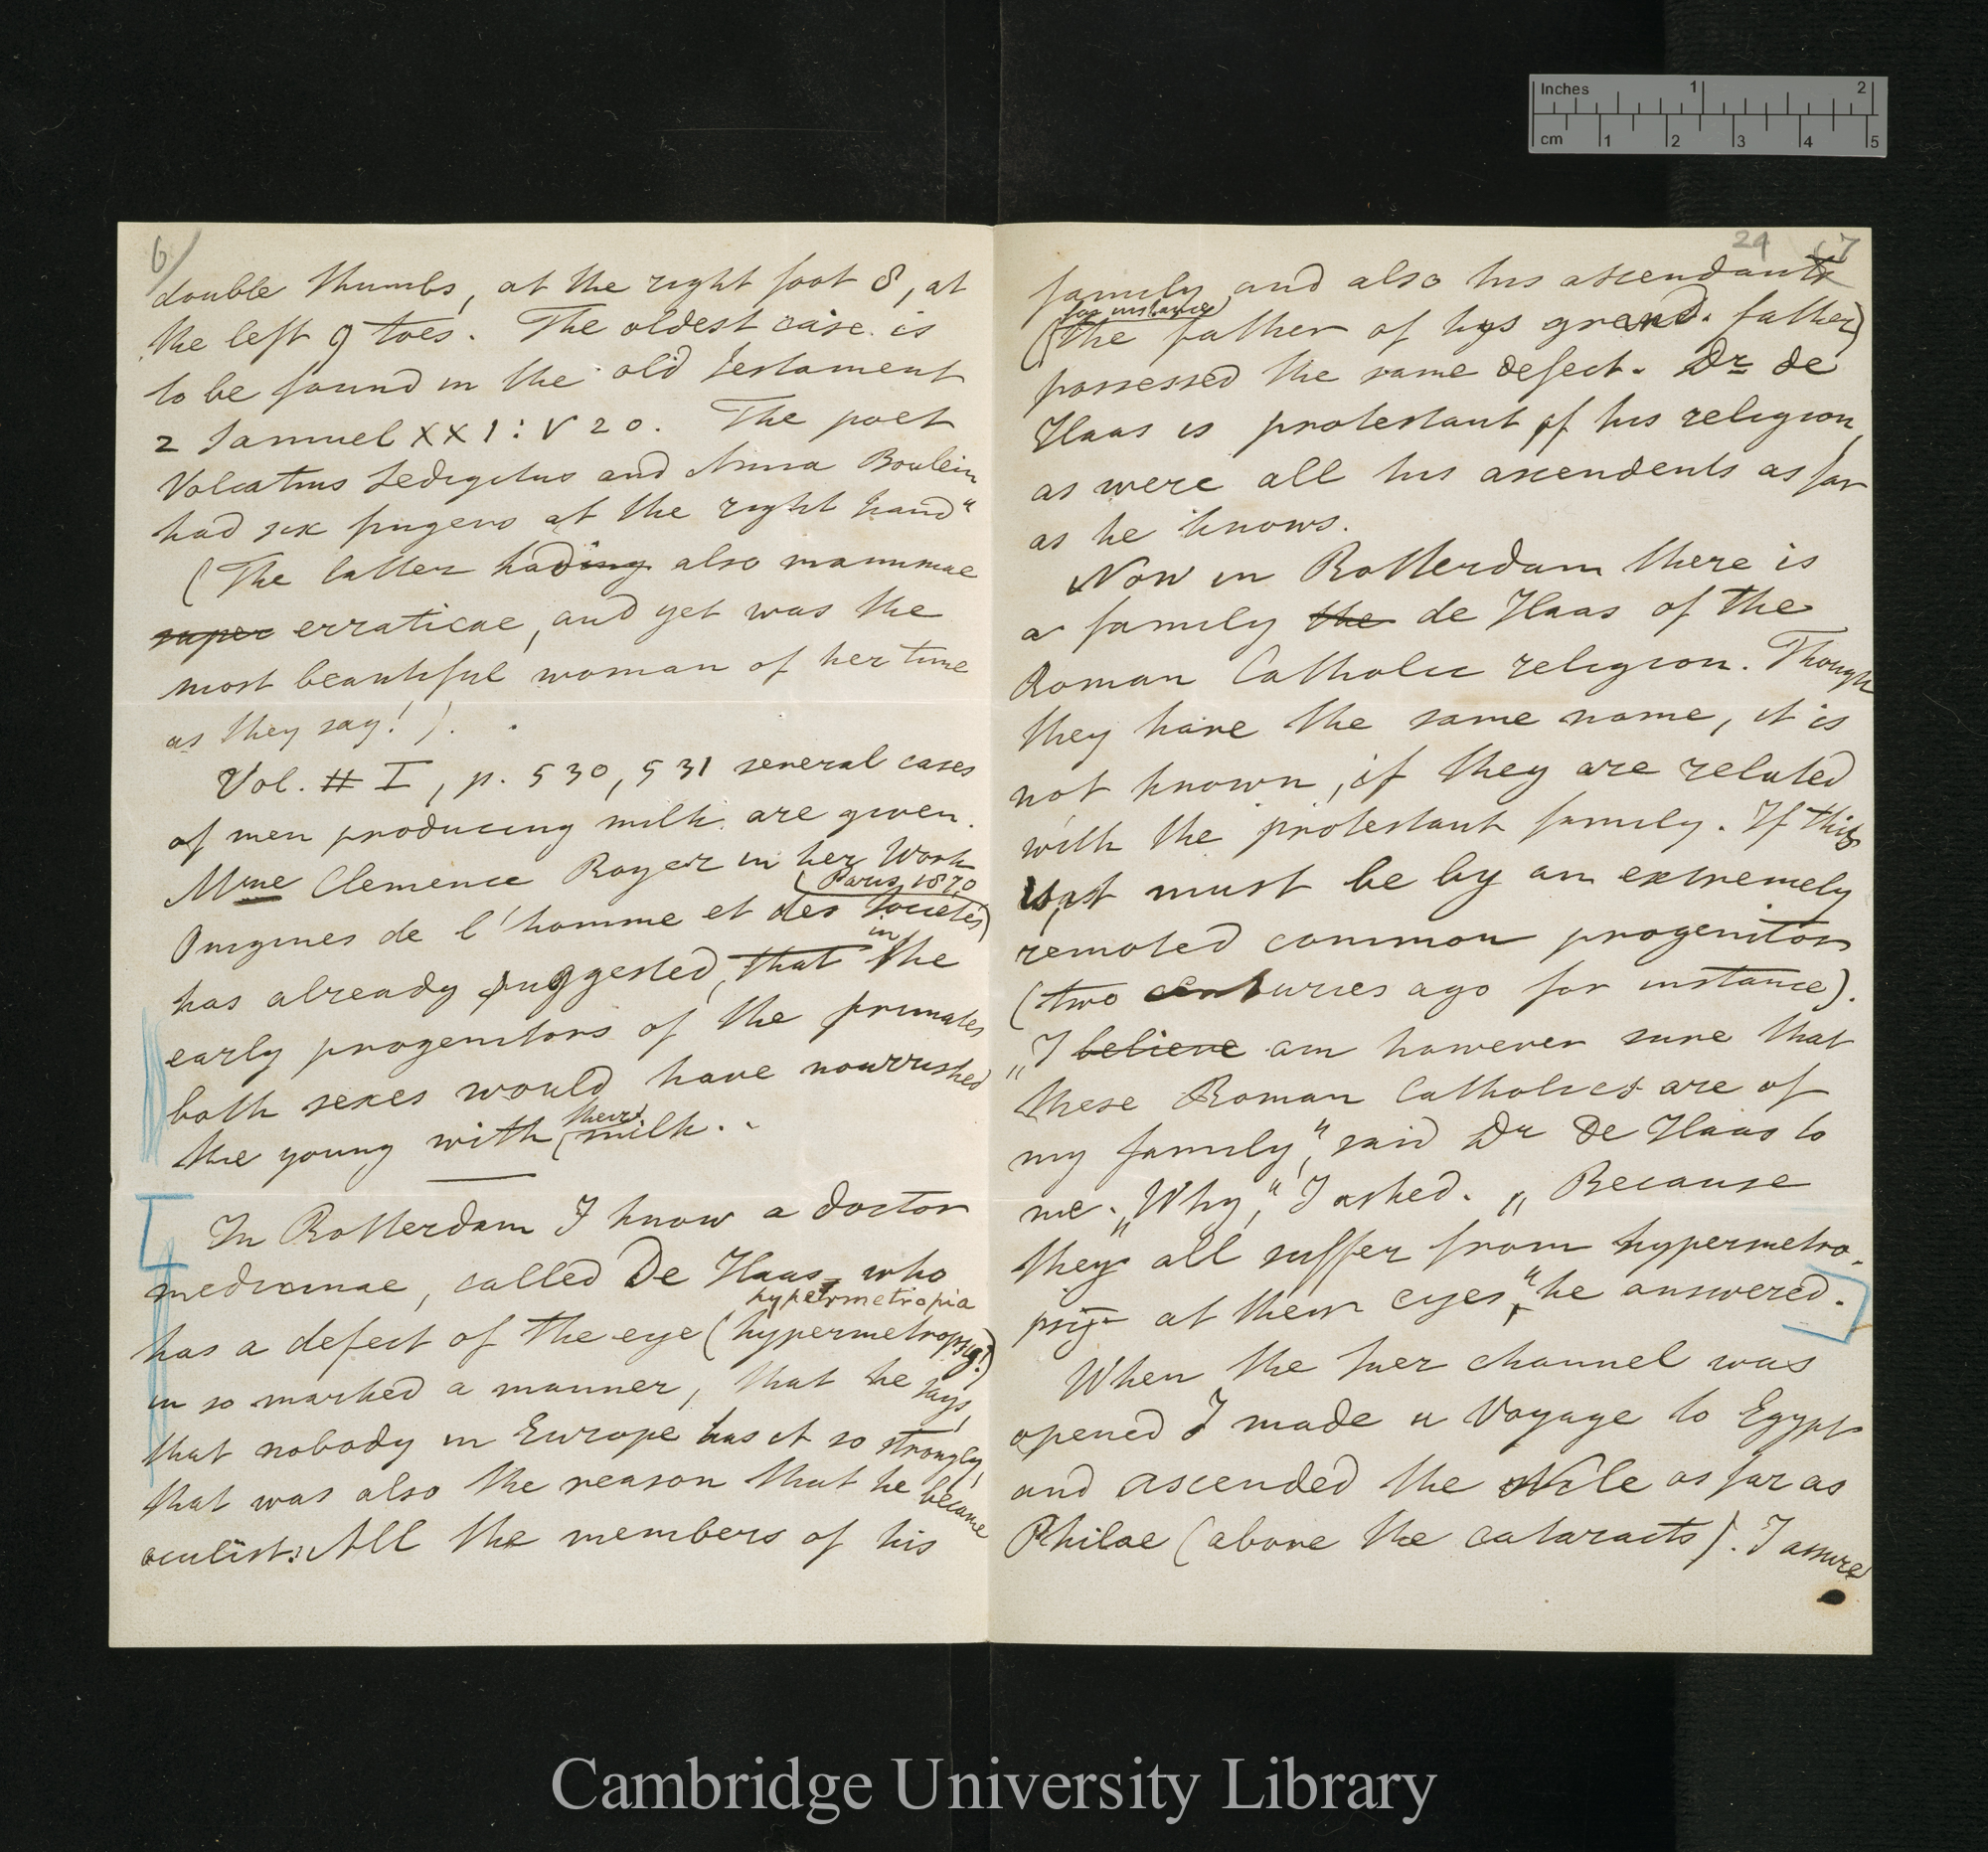 6/
double thumbs, at the right foot 8, at
the left 9 toes. The oldest case is
to be found in the old Testament
2 Samuel XXI: V 20. The poet
Volcatius Sedigitus and Anna Boulein
had six fingers at the right hand"
(The latter hading also mammae
super erraticae, and yet was the
most beautiful woman of her time
as they say!).
Vol. # I, p. 530, 531 several cases
of men producing milk are given.
Mme Clemence Royer in her Work
(Paris, 1870)
Origines de l'homme et des Sociétés
in
has already suggested, that the
early progenitors of the primates
both sexes would have nourrished
their
the young with milk.
In Rotterdam I know a doctor
medicinae, called De Haas, who
hypermetropia
has a defect of the eye (hypermetropy!)
in so marked a manner, that he says,
that nobody in Europe has it so strongly,
that was also the reason that he became
oculist. All the members of his
29
7
family and also his ascendants
for instance
(the father of his grand-father)
possessed the same defect. Dr de
Haas is protestant of his religion,
as were all his ascendents as far
as he knows.
Now in Rotterdam there is
a family the de Haas of the
Roman Catholic religion. Though
they have the same name, it is
not known, if they are related
with the protestant family. If this
is, it must be by an extremely
remoted common progenitor
(two centuries ago for instance).
„I believe am however sure that
these Roman Catholics are of
my family", said Dr De Haas to
me. „Why," I asked. „Because
they all suffer from hypermetro-
pij at their eyes", he answered.
When the Suez channel was
opened I made a Voyage to Egypt
and ascended the Nile as far as
Philae (above the cataracts). I assure
Inches 1 2
cm 1 2 3 4 5
Cambridge University Library